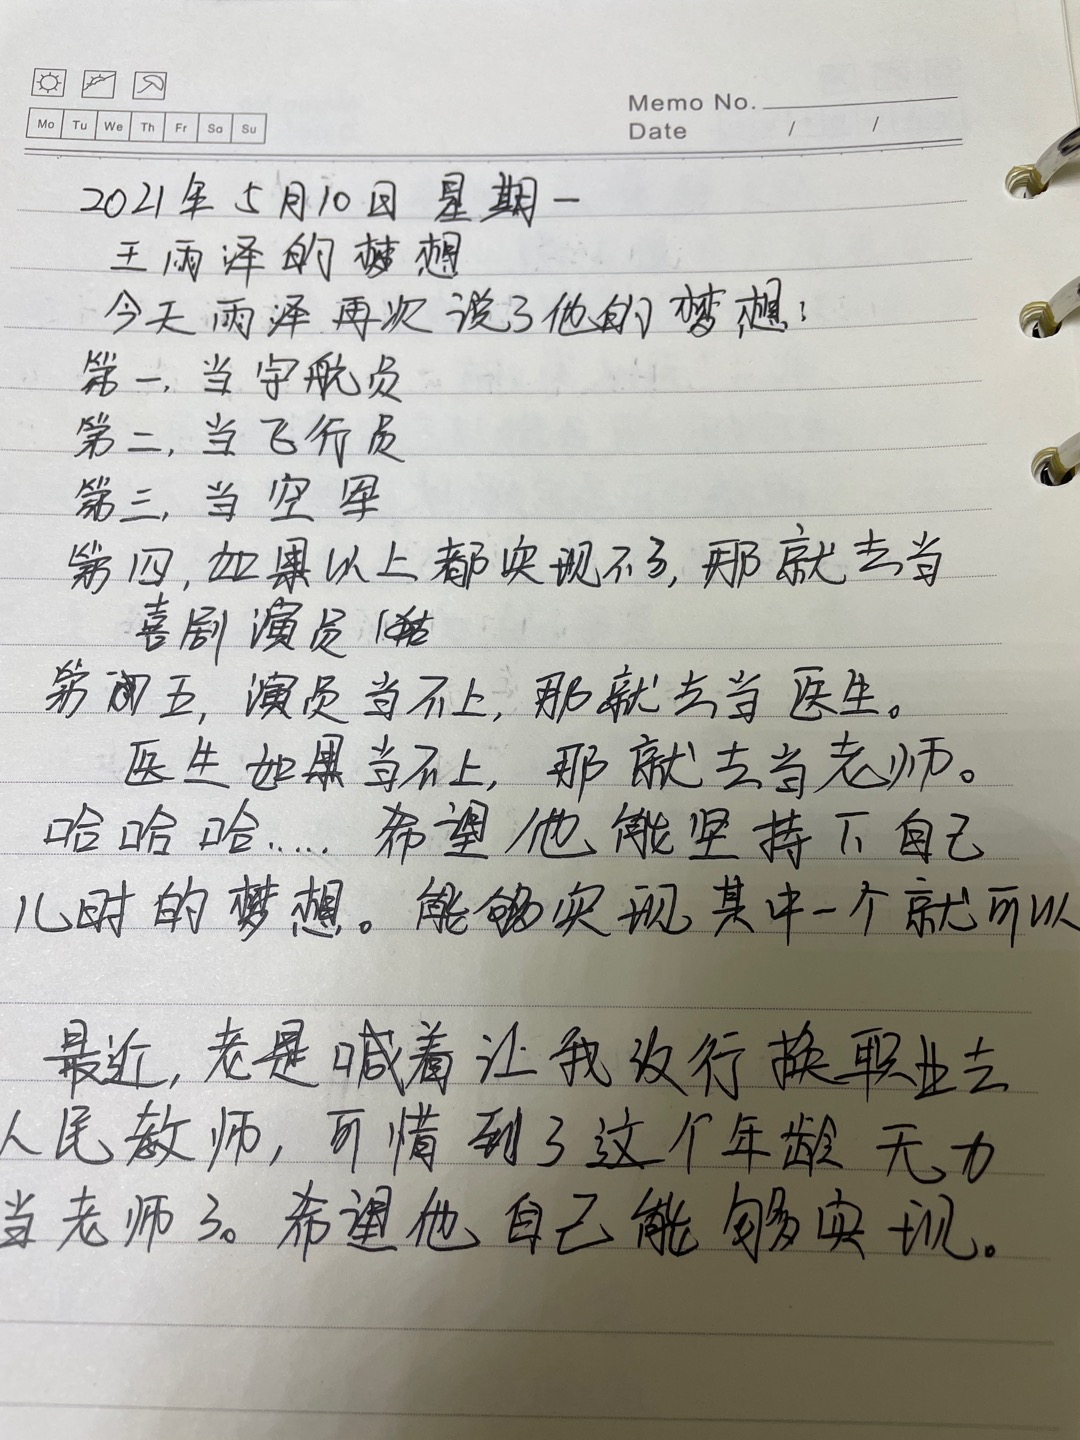 Memo No.
Mo Tu We Th Fr Sa Su
Date / /
2021年5月10日 星期一
王雨泽的梦想
今天雨泽再次说了他的梦想:
第一,当宇航员
第二,当飞行员
第三,当空军
第四,如果以上都实现不了,那就去当
喜剧演员
第五,演员当不上,那就去当医生。
医生如果当不上,那就去当老师。
哈哈哈..... 希望他能坚持下自己
儿时的梦想。能够实现其中一个就可以
最近,老是喊着让我改行换职业去
人民教师,可惜到了这个年龄无力
当老师了。希望他自己能够实现。